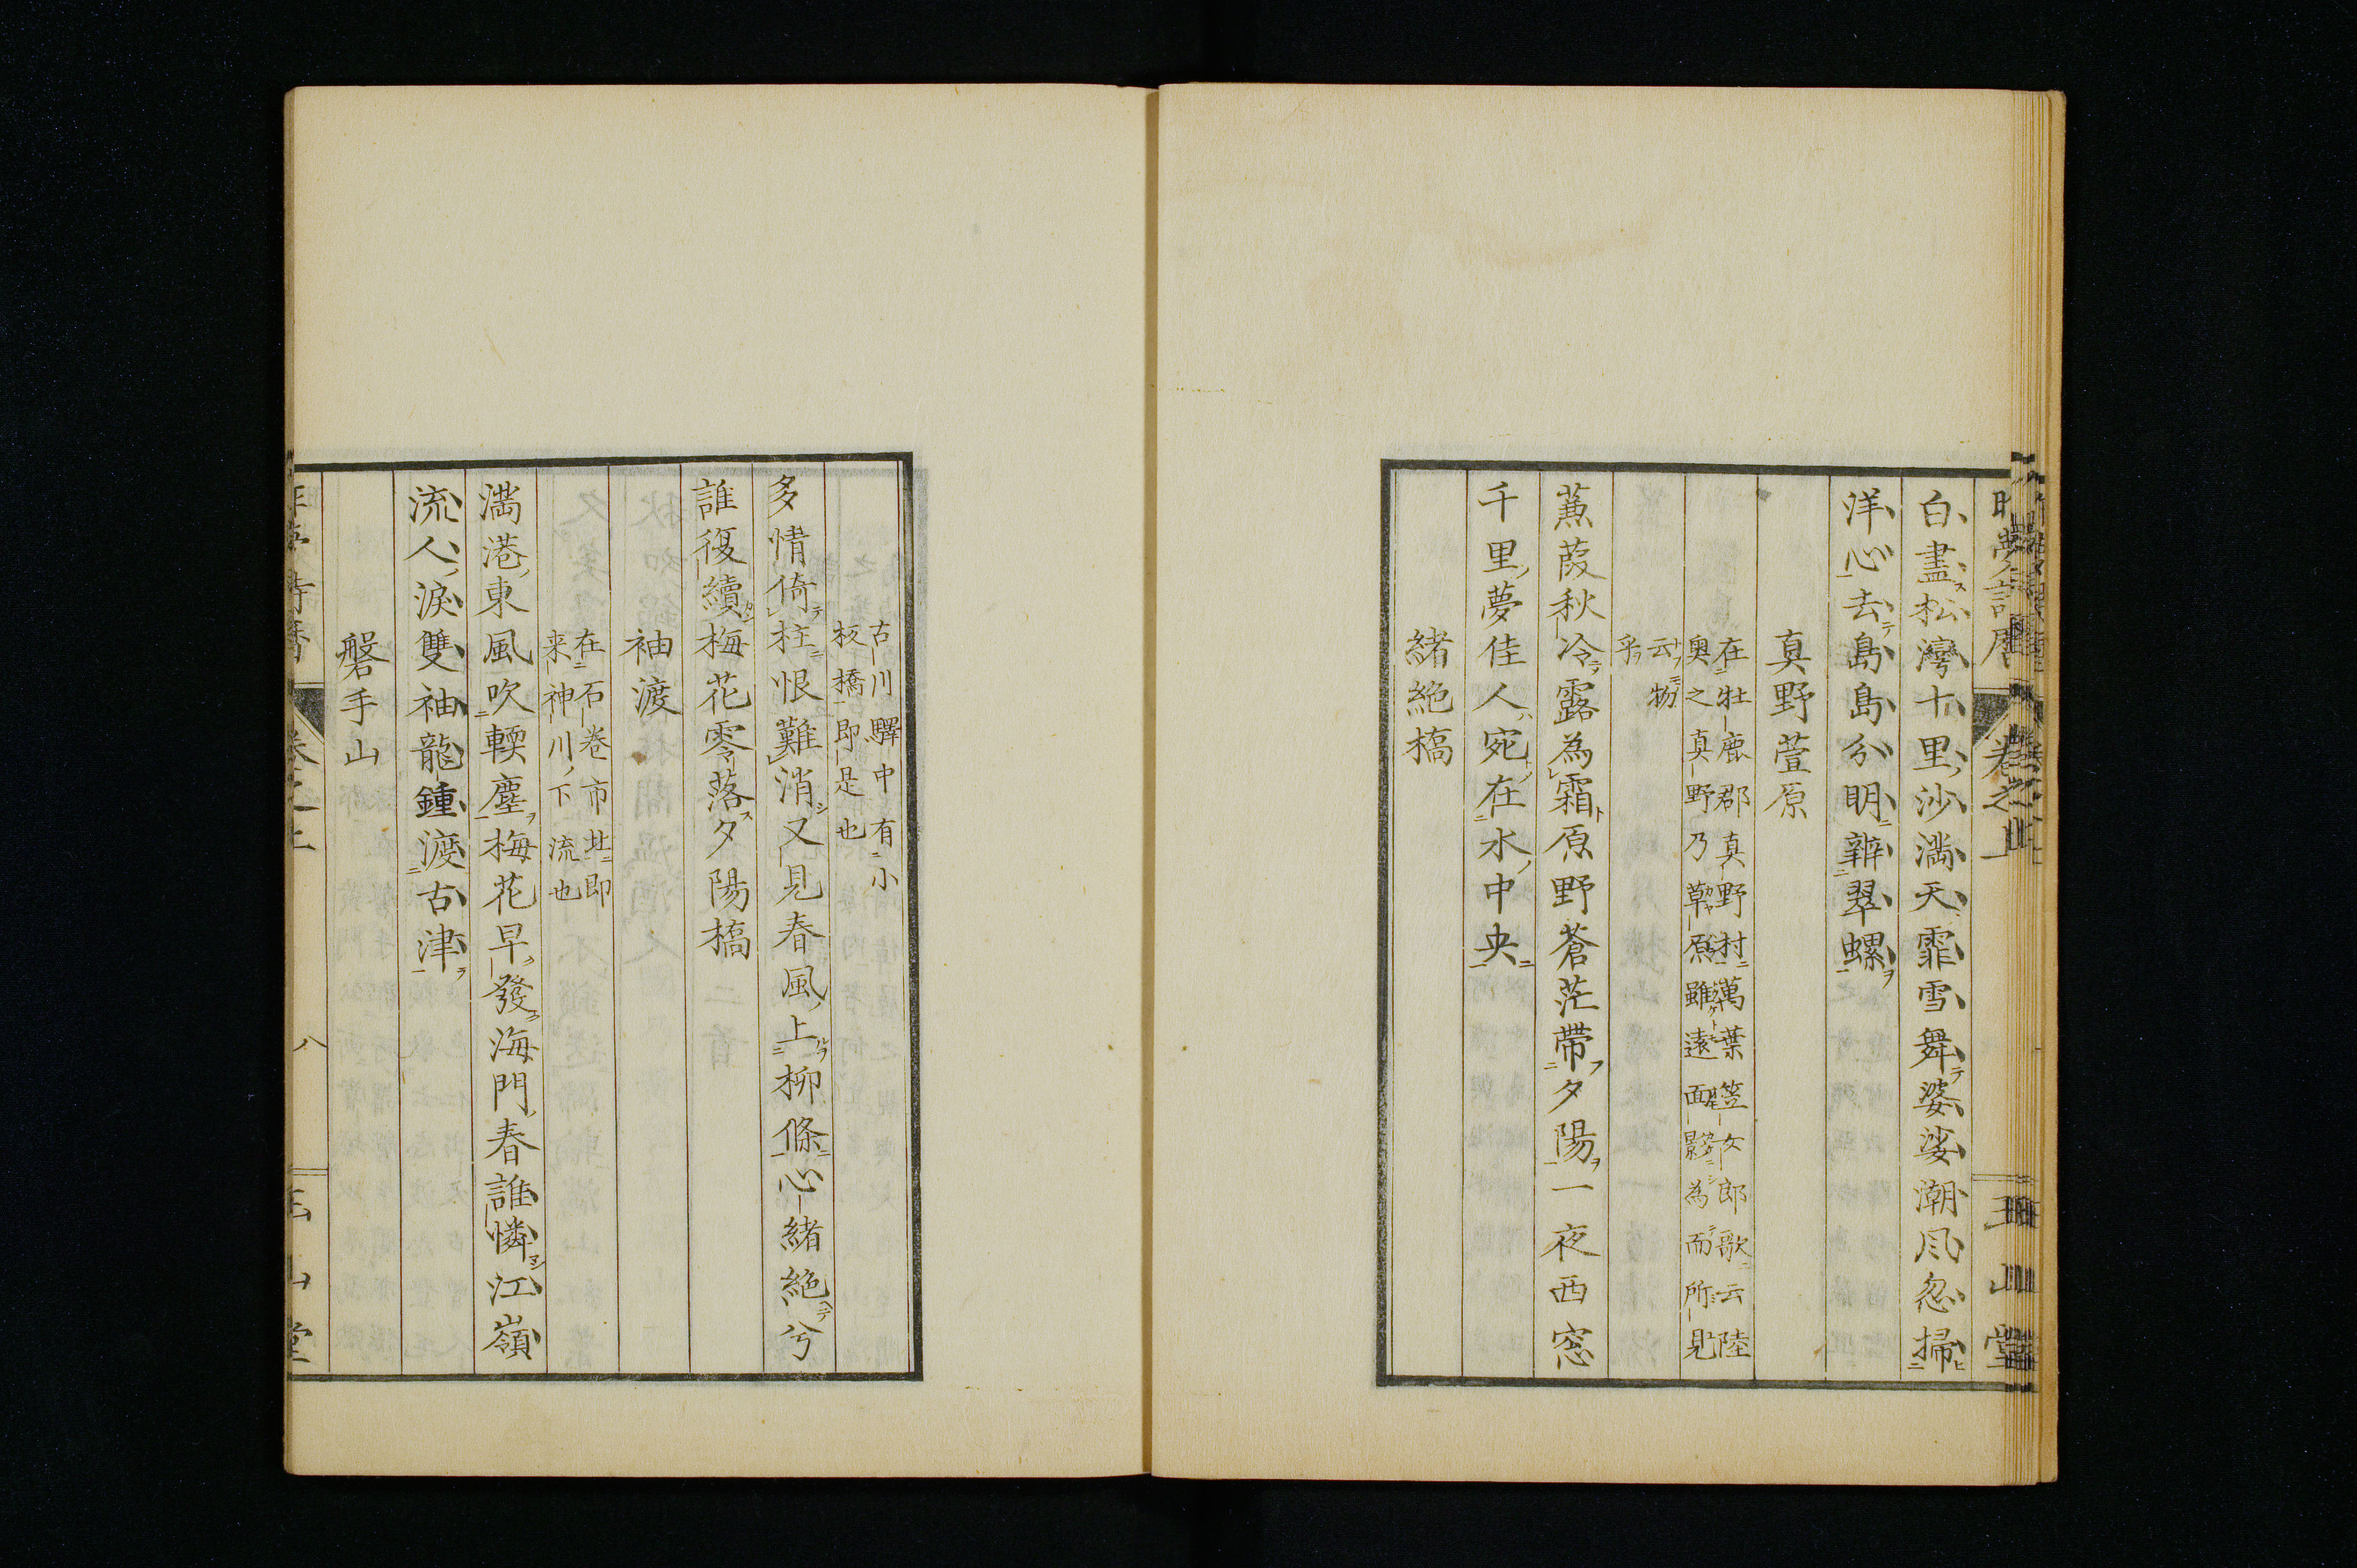 白盡松灣十里沙滿天霏雪舞婆娑潮風忽掃
洋心去島島分明辨翠螺
真野萱原
在牡鹿郡真野村萬葉笠女郎歌云陸
奧之真野乃草原雖遠面影為而所見
云物
乎
蒹葭秋冷露為霜原野蒼茫帶夕陽一夜西窓
千里夢佳人宛在水中央
緒絶橋
古川驛中有小
板橋即是也
多情倚柱恨難消又見春風上柳條心緒絶兮
誰復續梅花零落夕陽橋
袖渡
在石卷市北即
来神川下流也
滿港東風吹輭塵梅花早發海門春誰憐江嶺
流人淚雙袖龍鍾渡古津
磐手山
八